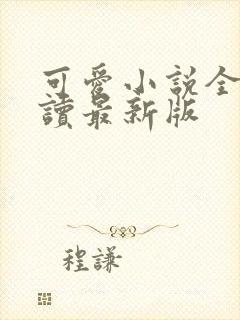 可愛小説全
讀最新版
程謙